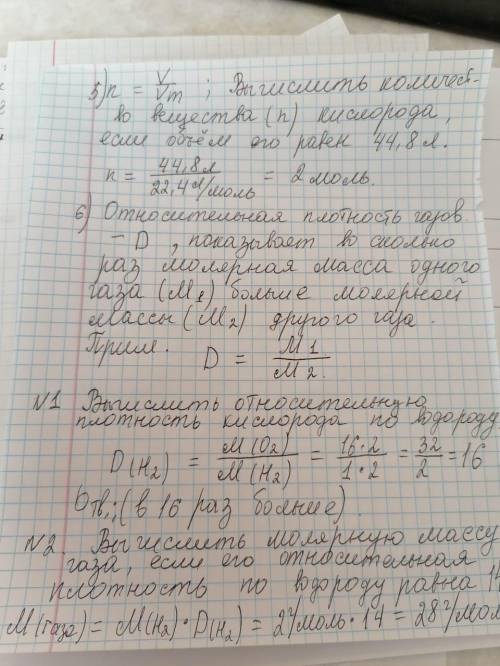 5) n = V/Vm ; Вычислить количест-
во вещества (n) кислорода,
если объём его равен 44,8 л.
n = 44,8 л / 22,4 л/моль = 2 моль.
6) Относительная плотность газов
– D , показывает во сколько
раз молярная масса одного
газа (M1) больше молярной
массы (M2) другого газа.
Прим. D = M1 / M2.
N1 Вычислить относительную
плотность кислорода по водороду
D(H2) = M(O2) / M(H2) = 16·2 / 1·2 = 32 / 2 = 16
Отв.: (в 16 раз больше).
N2. Вычислить молярную массу
газа, если его относительная
плотность по водороду равна 14
M(газа) = M(H2)·D(H2) = 2 г/моль·14 = 28 г/мол